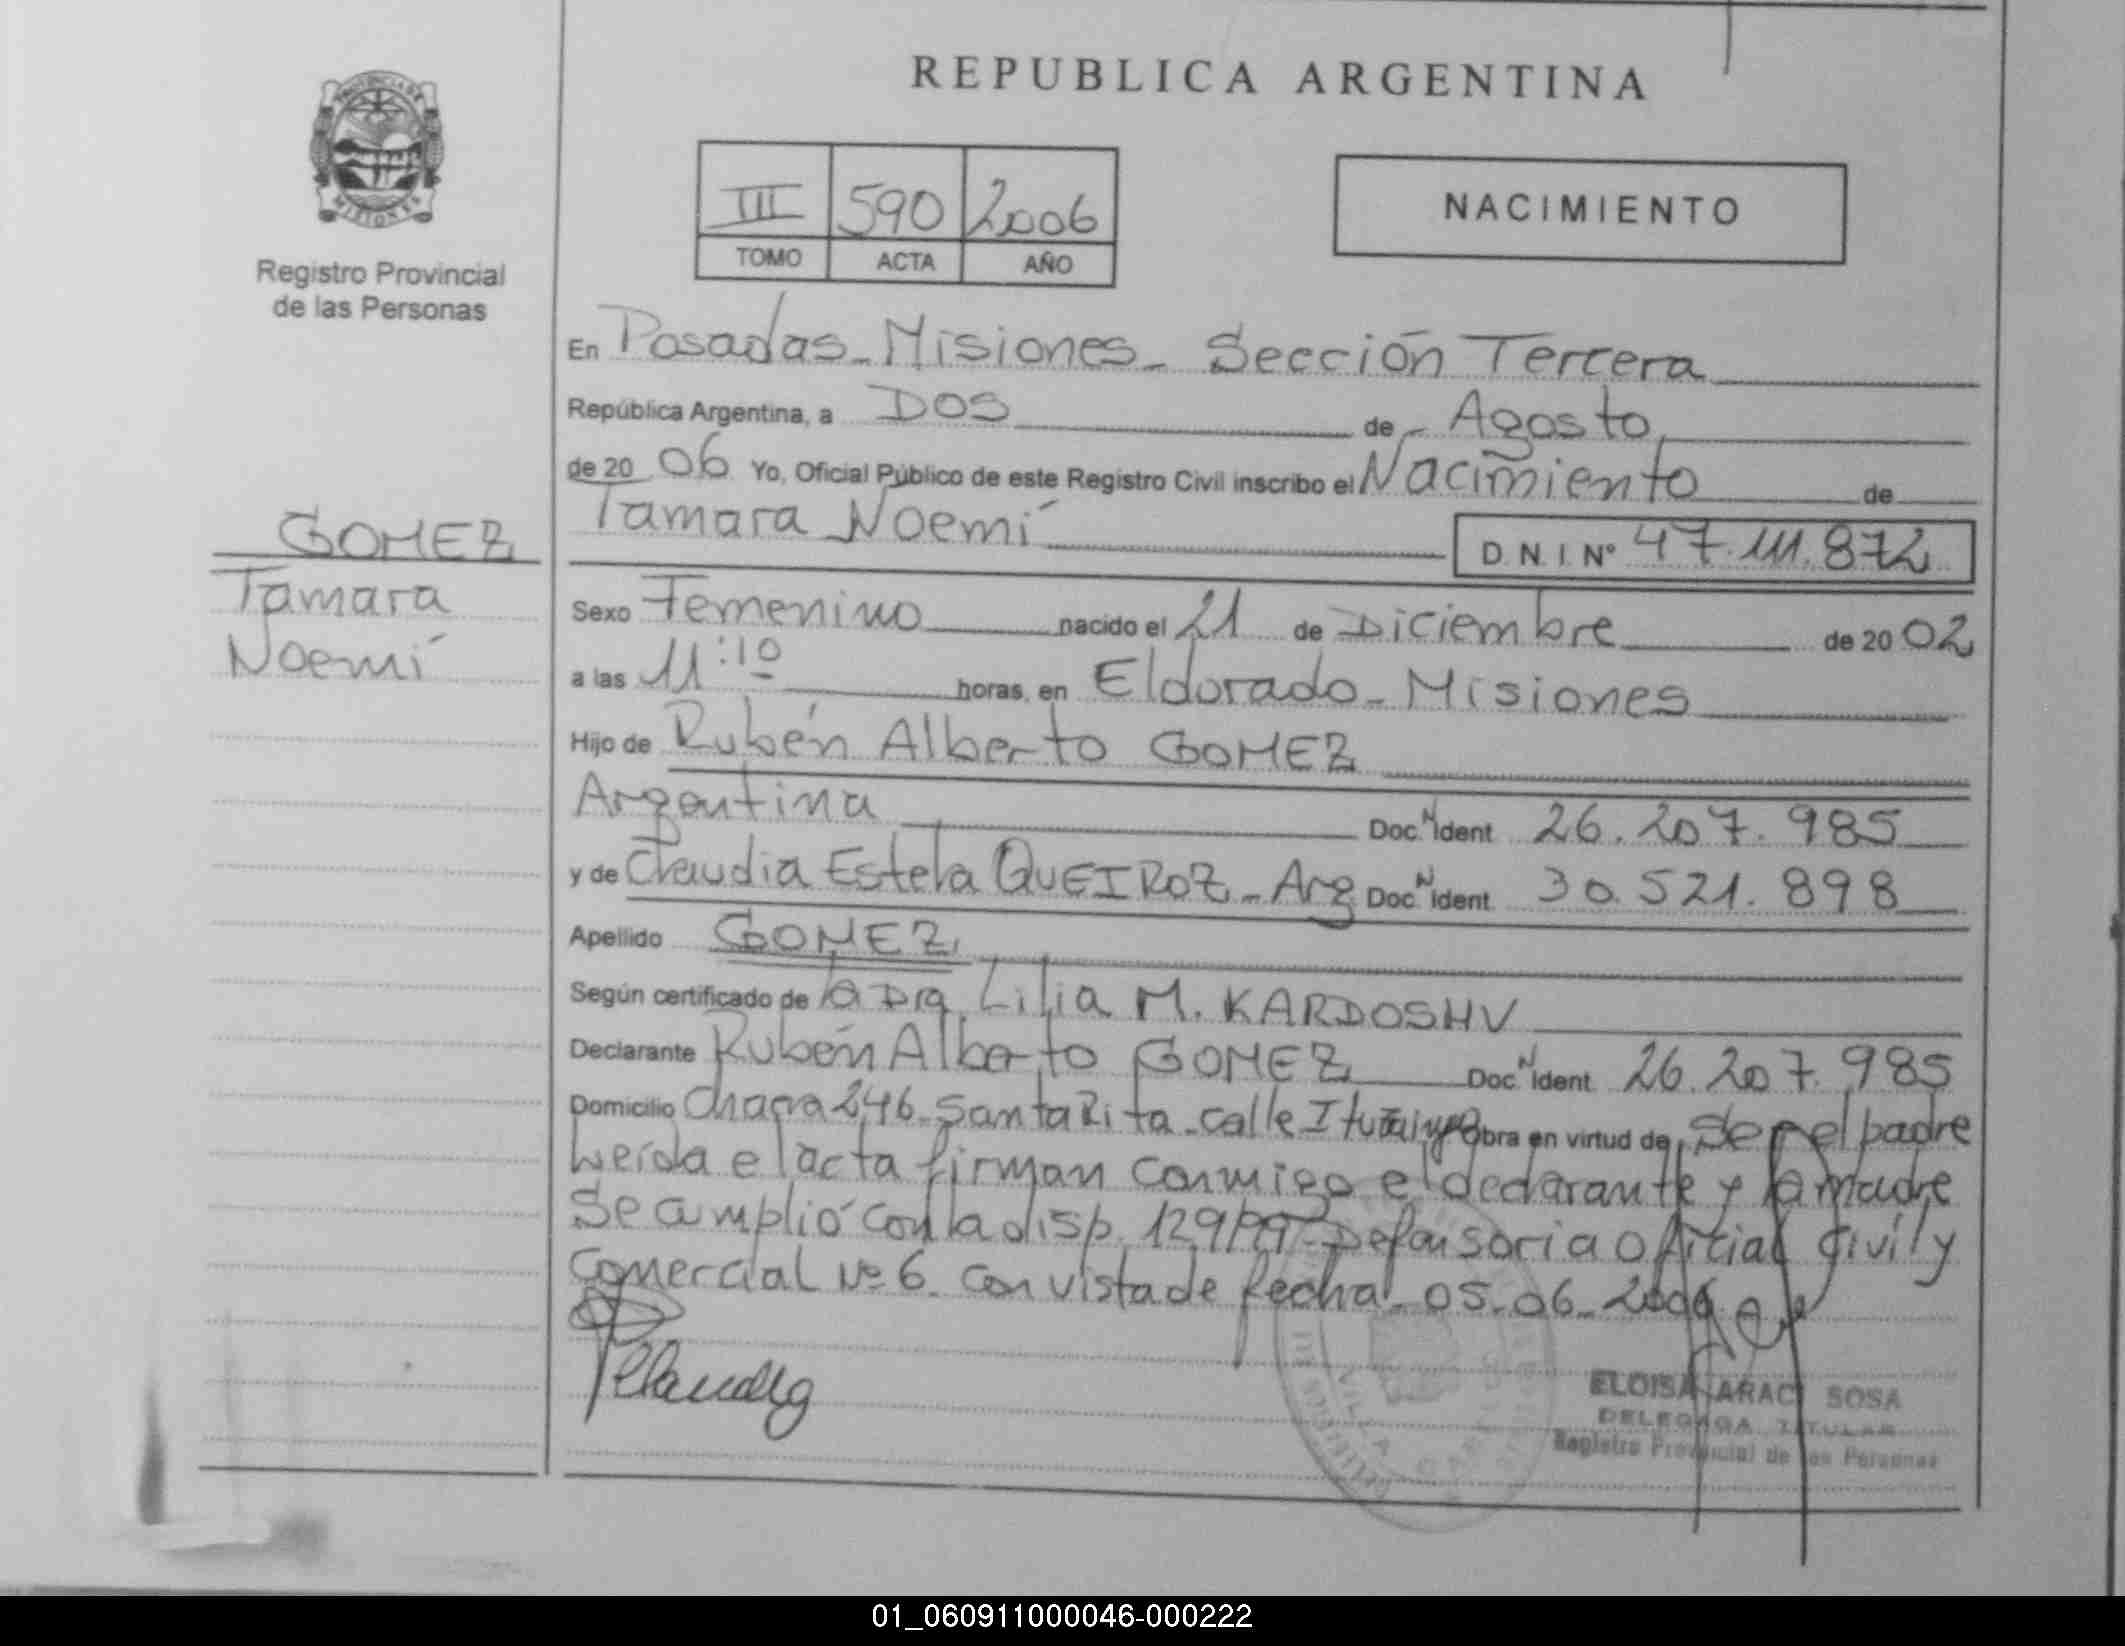 REPUBLICA ARGENTINA
PROVINCIA DE
MISIONES
III 590 2006
TOMO ACTA AÑO
NACIMIENTO
Registro Provincial
de las Personas
En Posadas - Misiones - Sección Tercera
República Argentina, a DOS de Agosto
de 20 06 Yo, Oficial Público de este Registro Civil inscribo el Nacimiento de
Tamara Noemí D.N.I. Nº 47.111.872
GOMEZ
Tamara
Noemí
Sexo Femenino nacido el 21 de Diciembre de 20 02
a las 11:10 horas, en Eldorado - Misiones
Hijo de Rubén Alberto GOMEZ
Argentina Doc. N Ident. 26.207.985
y de Claudia Estela QUEIROZ - Arg Doc. N Ident. 30.521.898
Apellido GOMEZ
Según certificado de la Dra. Lilia M. KARDOSHV
Declarante Rubén Alberto GOMEZ Doc. N Ident. 26.207.985
Domicilio Chacra 246 - Santa Rita - calle obra en virtud de Ser el padre
Leída el acta firman conmigo el declarante y la madre
Se amplió con la disp. 129/99 - Defensoria Oficial Civil y
Comercial Nº 6. con vista de fecha - 05 - 06 - 2006
Claudia
ELOISA ARACI SOSA
DELEGADA TITULAR
Registro Provincial de las Personas
01_060911000046-000222